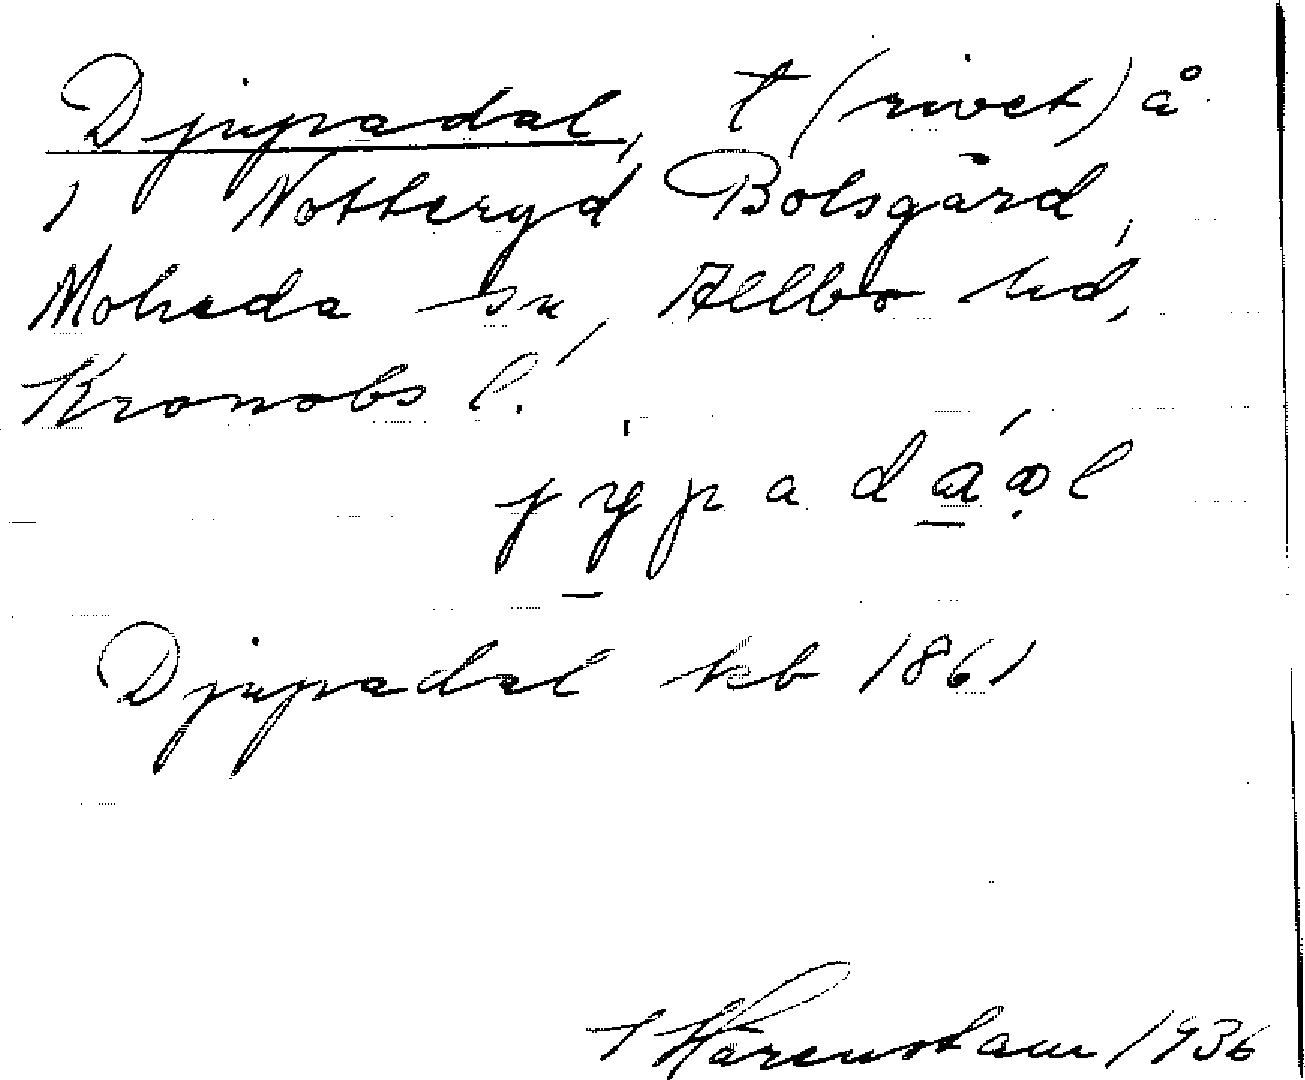 Djupadal, t (rivet) å
1 Notteryd Bolsgård,
Moheda sn, Allbo hd,
Kronobs l.
Djupadal kb 1861
Härenstam 1936